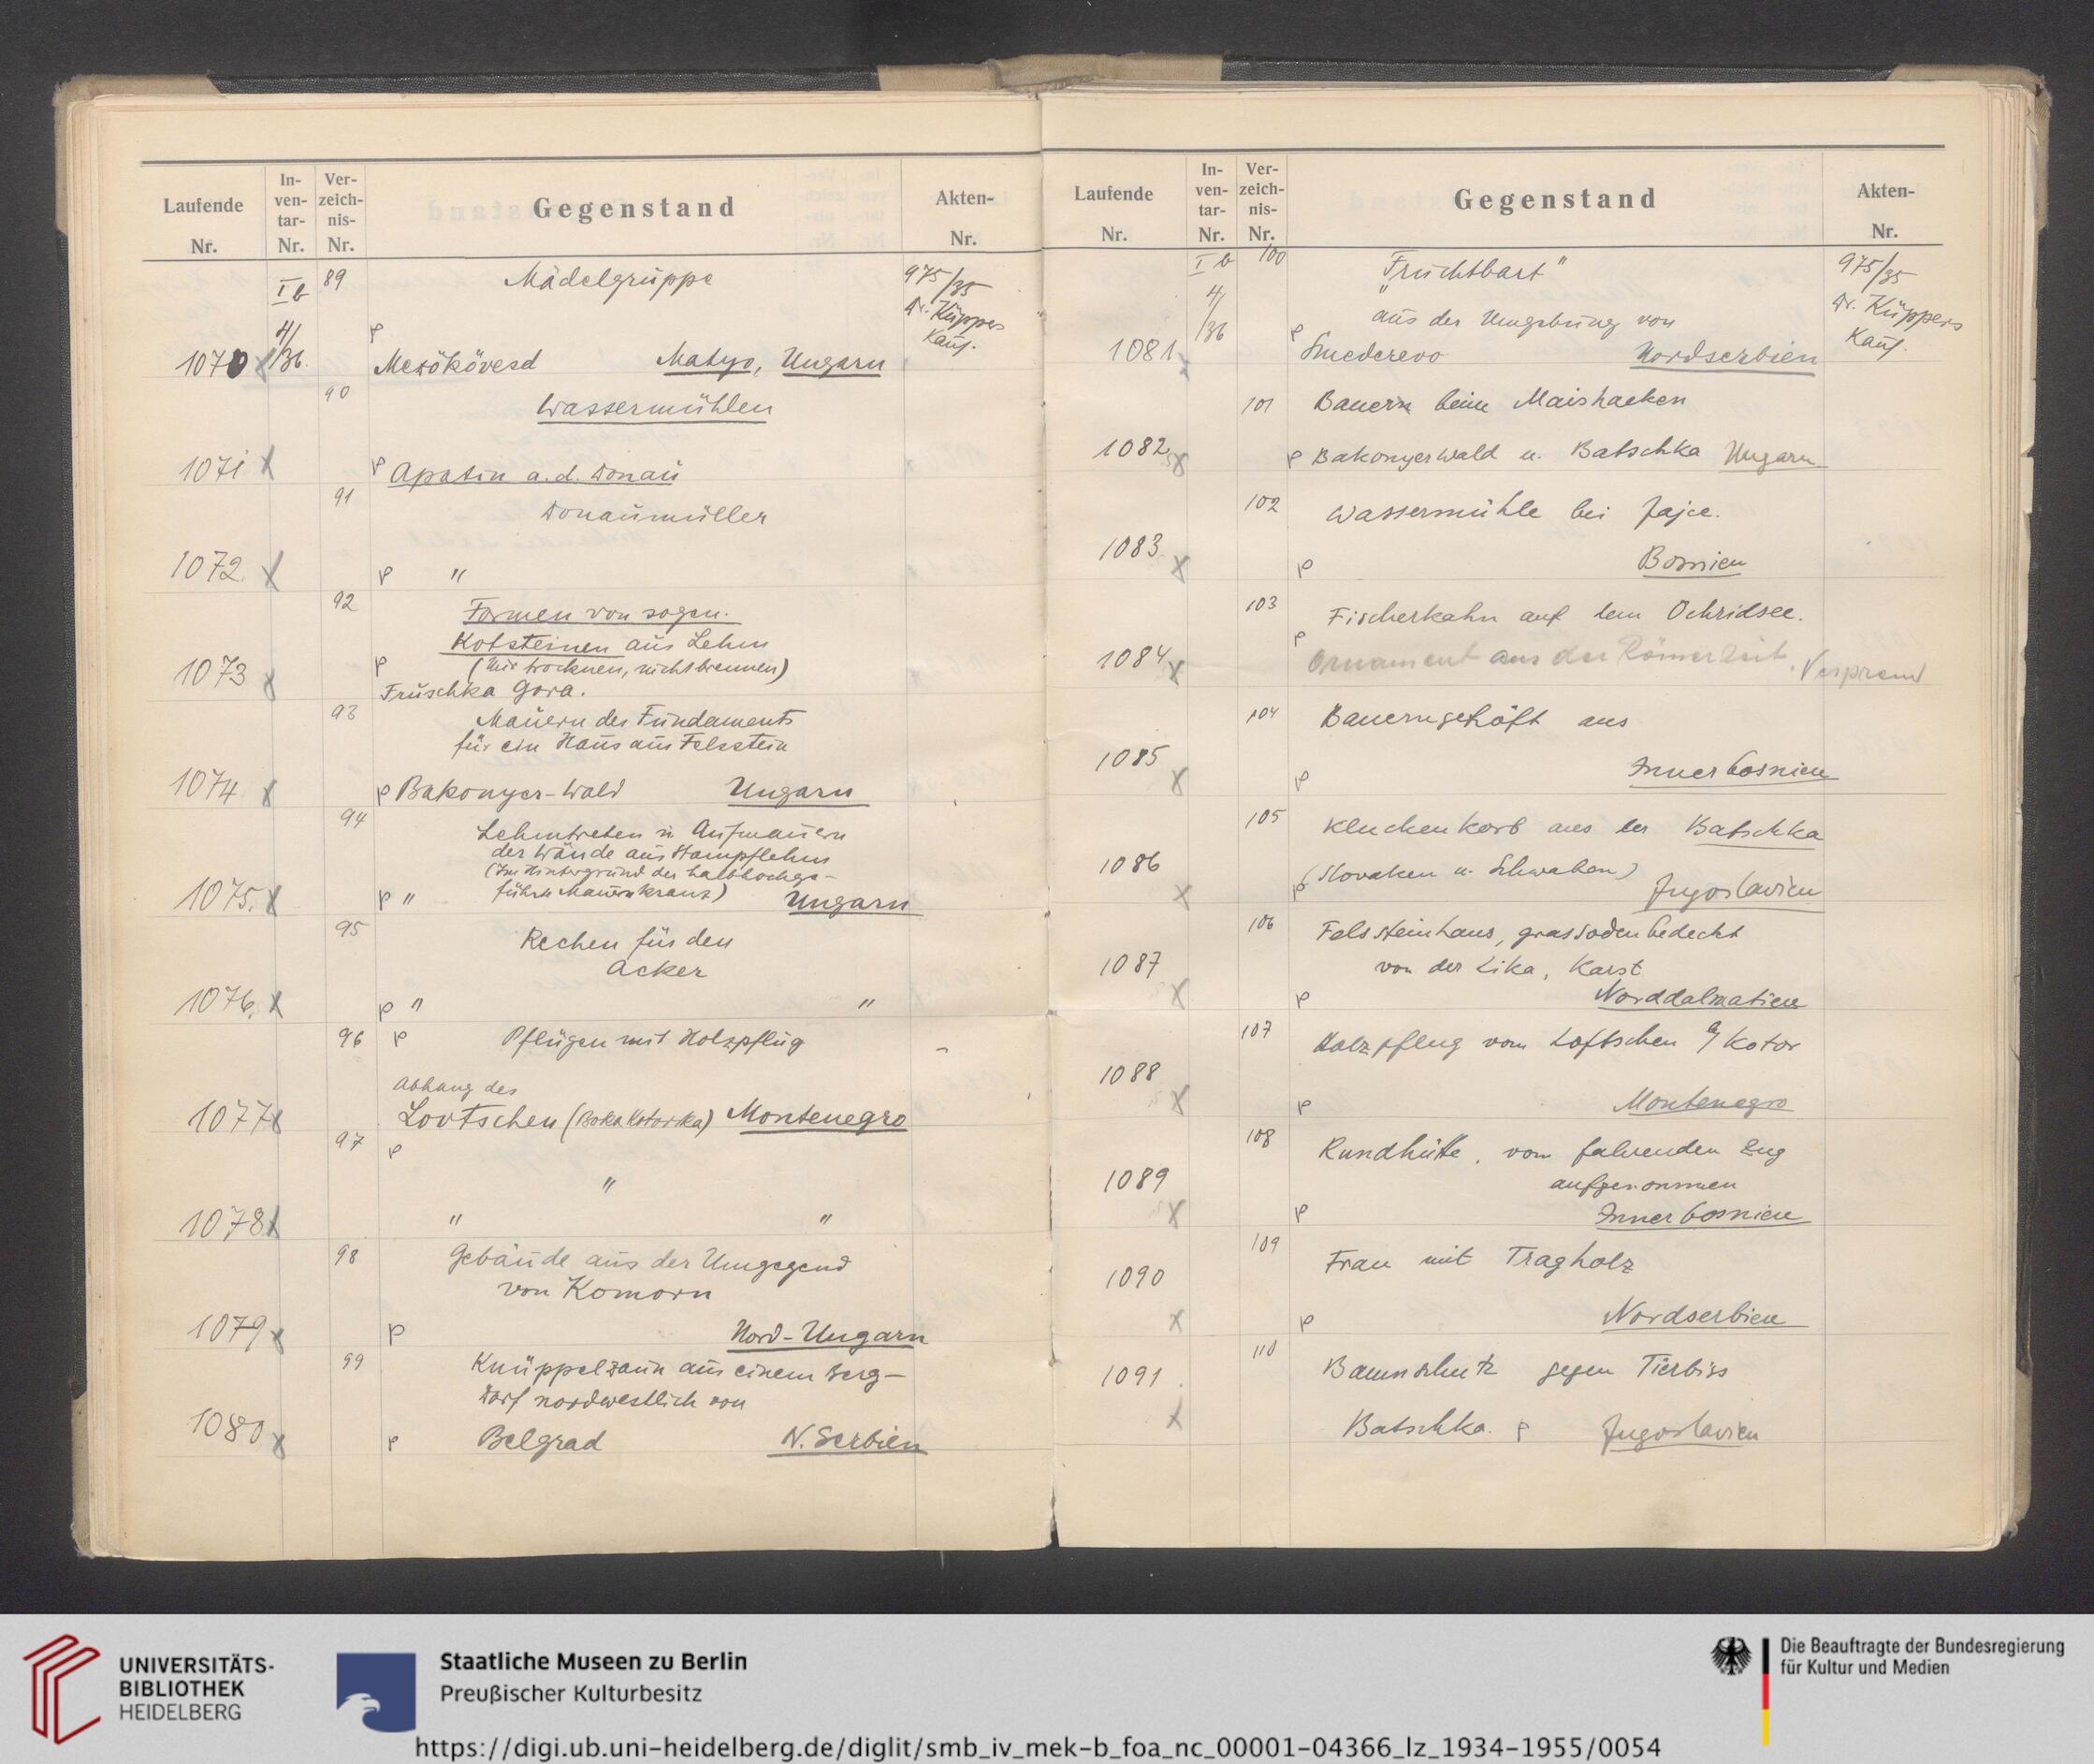 Laufende Nr. In-ven-tar-Nr. Ver-zeich-nis-Nr. Gegenstand Akten-Nr.
I b 89 Mädelgruppe 975/35
Dr. Küppers
4/36. p Kauf.
1070 x Mezökövesd Matyo, Ungarn
90 Wassermühlen
1071 x p Apatin a. d. Donau
91 Donaumüller
1072. x p "
92 Formen von sogen.
Kotsteinen aus Lehm
1073 x p (Nur trocknen, nicht brennen)
Fruschka Gora.
93 Mauern des Fundaments
für ein Haus aus Felsstein
1074. x p Bakonyer-Wald Ungarn
94 Lehmtreten u. Aufmauern
der Wände aus Stampflehm
(Im Hintergrund der halbhochge-
1075. x p " führte Mauernkranz) Ungarn
95 Rechen für den
Acker
1076. x p " "
96 p Pflügen mit Holzpflug
Abhang des
1077 x Lovtschen (Boka Kotorska) Montenegro
97 p
"
1078 x " "
98 Gebäude aus der Umgegend
von Komorn
1079 x p Nord-Ungarn
99 Knüppelzaun aus einem Berg-
dorf nordwestlich von
1080 x p Belgrad N. Serbien
Laufende Nr. In-ven-tar-Nr. Ver-zeich-nis-Nr. Gegenstand Akten-Nr.
I b 100 „Fruchtbart" 975/35
4/36 aus der Umgebung von Dr. Küppers
1081 x p Smederevo Nordserbien Kauf.
101 Bauern beim Maishacken
1082 x p Bakonyerwald u. Batschka Ungarn
102 Wassermühle bei Jajce.
1083 x p Bosnien
103 Fischerkahn auf dem Ochridsee.
1084 x p Ornament aus der Römerzeit. Vesprem
104 Bauerngehöft aus
1085 x p Innerbosnien
105 Kluckenkorb aus der Batschka
1086 (Slovaken u. Schwaben)
x p Jugoslavien
106 Felssteinhaus, grassodenbedeckt
1087 von der Lika, Karst
x p Norddalmatien
107 Holzpflug vom Loftschen b/ Kotor
1088
x p Montenegro
108 Rundhütte, vom fahrenden Zug
1089 aufgenommen
x p Innerbosnien
109 Frau mit Tragholz
1090
x p Nordserbien
110 Baumschutz gegen Tierbiss
1091.
x Batschka. p Jugoslavien
UNIVERSITÄTS-
BIBLIOTHEK
HEIDELBERG
Staatliche Museen zu Berlin
Preußischer Kulturbesitz
Die Beauftragte der Bundesregierung
für Kultur und Medien
https://digi.ub.uni-heidelberg.de/diglit/smb_iv_mek-b_foa_nc_00001-04366_lz_1934-1955/0054